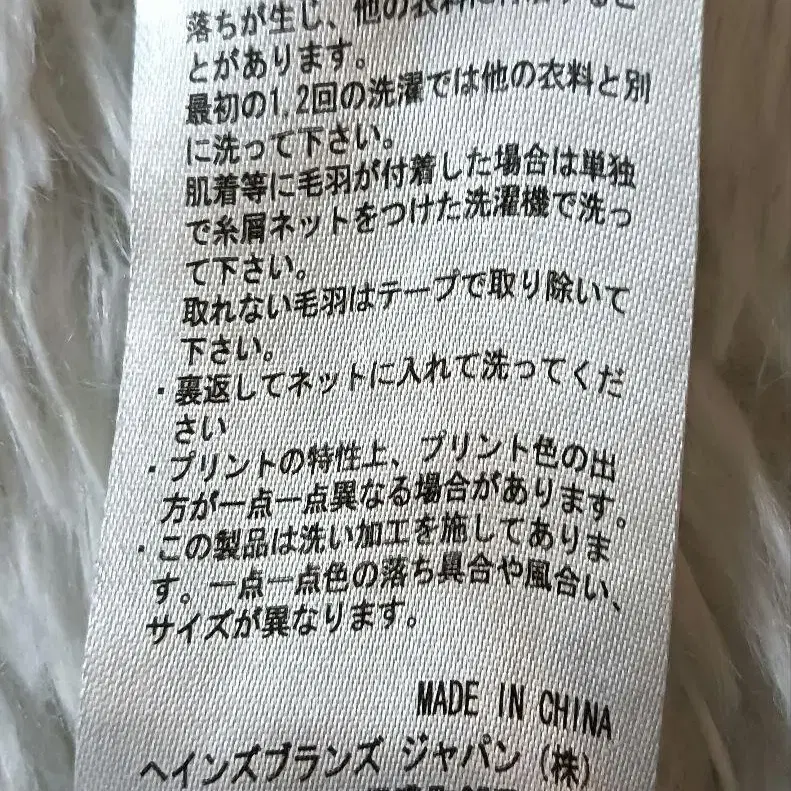 落ちが生じ、他の衣料に付着するこ
とがあります。
最初の1,2回の洗濯では他の衣料と別
に洗って下さい。
肌着等に毛羽が付着した場合は単独
で糸屑ネットをつけた洗濯機で洗っ
て下さい。
取れない毛羽はテープで取り除いて
下さい。
・裏返してネットに入れて洗ってくだ
さい
・プリントの特性上、プリント色の出
方が一点一点異なる場合があります。
・この製品は洗い加工を施してありま
す。一点一点色の落ち具合や風合い、
サイズが異なります。
MADE IN CHINA
ヘインズブランズ ジャパン(株)